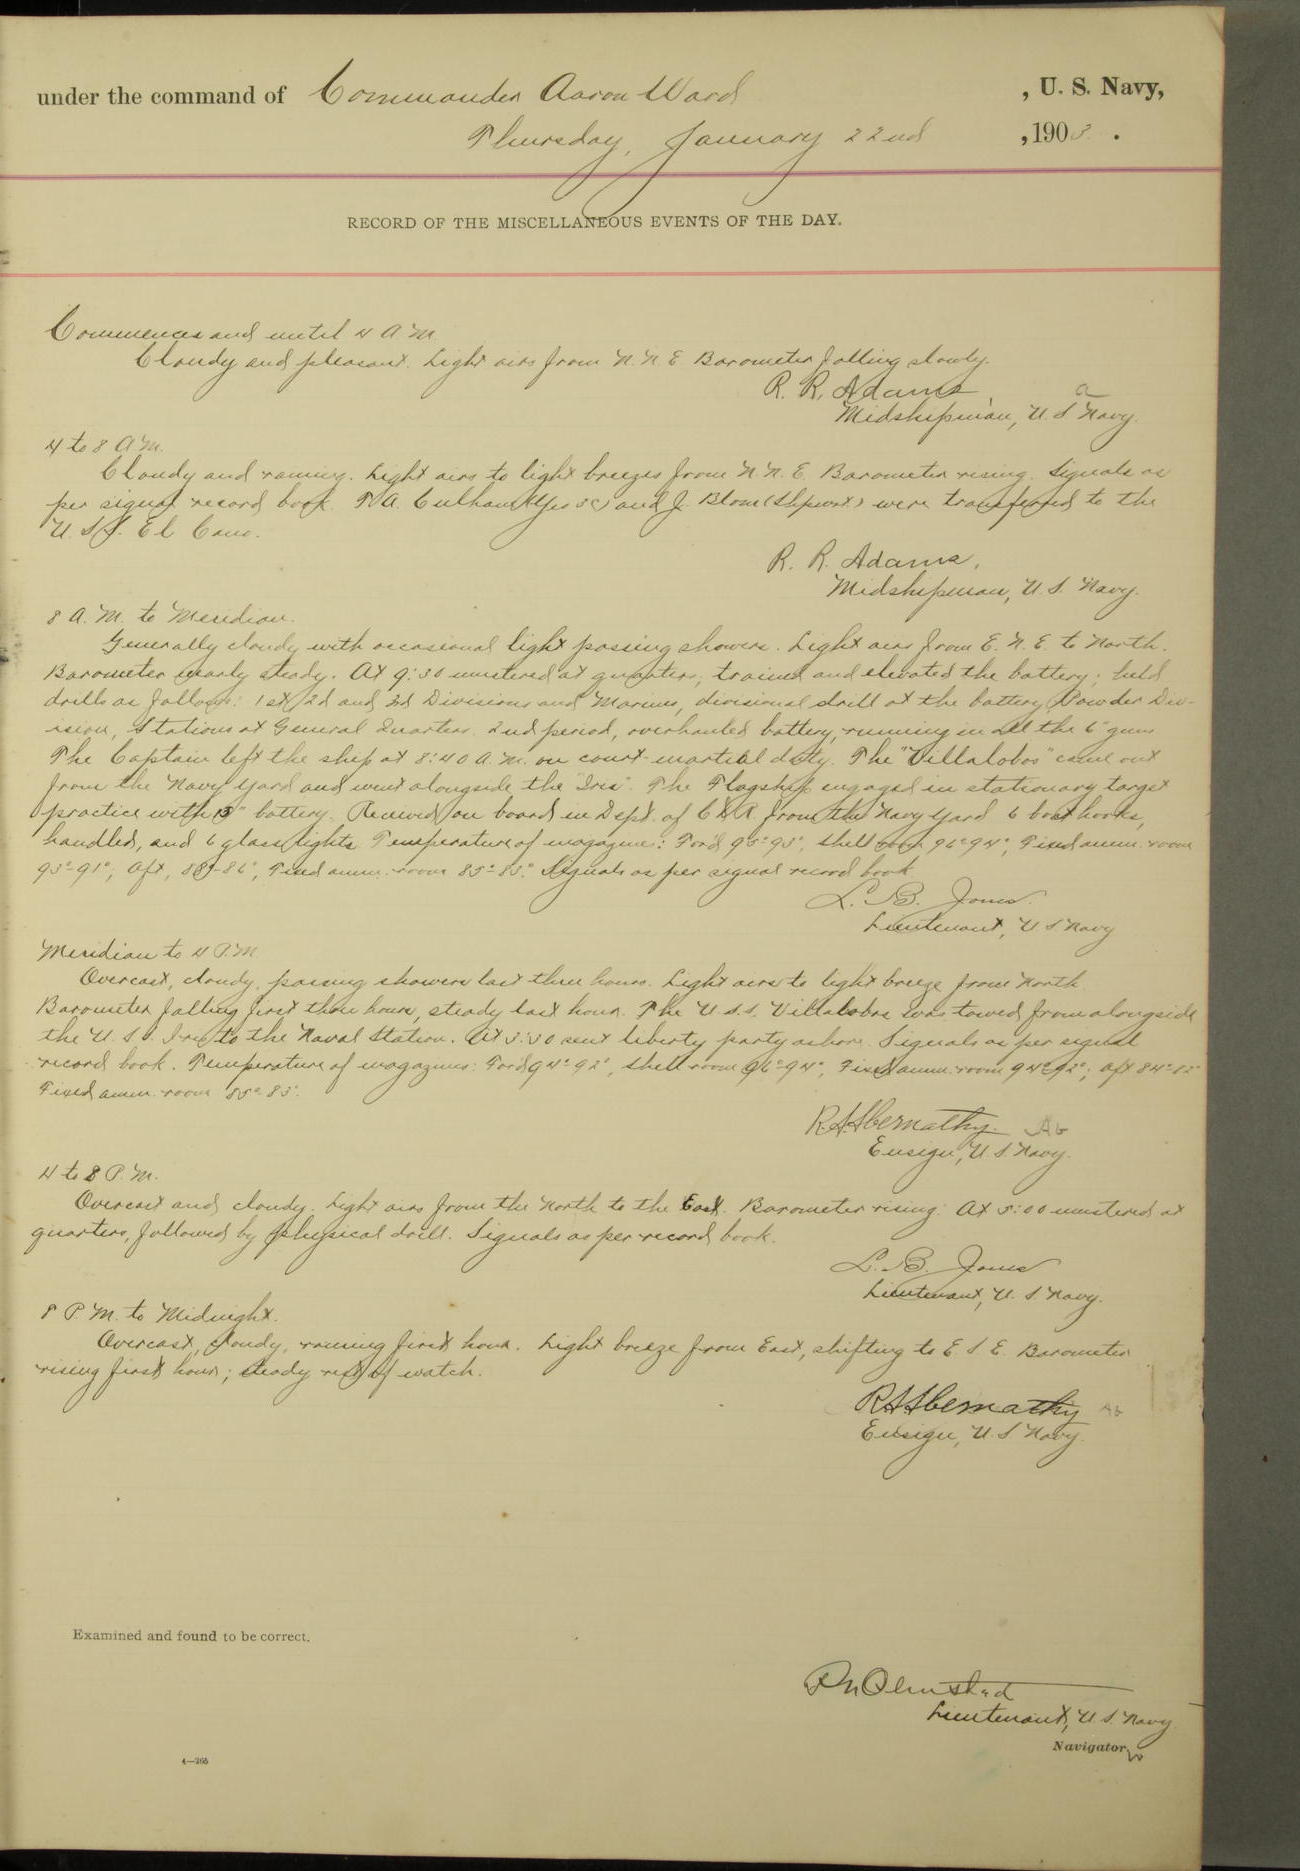 under the command of Commander Aaron Ward , U. S. Navy,
Thursday, January 22nd , 1903 .
RECORD OF THE MISCELLANEOUS EVENTS OF THE DAY.
Commences and until 4 A.M.
Cloudy and pleasant. Light airs from N.N.E Barometer falling slowly.
R. R. Adams, a
Midshipman, U.S Navy.
4 to 8 A.M.
Cloudy and raining. Light airs to light breezes from N.N.E. Barometer rising. Signals as
per signal record book. A. Culham (Yeo 3c) and J. Blom (Shpwrt.) were transferred to the
U.S.S. El Cano.
R. R. Adams,
Midshipman, U.S. Navy.
8 A.M. to Meridian.
Generally cloudy with occasional light passing showers. Light airs from E.N.E to North.
Barometer nearly steady. At 9:30 mustered at quarters, trained and elevated the battery; held
drills as follows: 1st, 2d and 3d Divisions and Marines, divisional drill at the battery, Powder Div-
ision, Stations at General Quarters. 2nd period, overhauled battery, running in all the 6" guns
The Captain left the ship at 8:40 A.M. on court-martial duty. The "Villalobos" came out
from the Navy Yard and went alongside the "Iris". The Flagship engaged in stationary target
practice with 3" battery. Received on board in Dept. of C & R from the Navy Yard 6 boat hooks,
handled, and 6 glass lights. Temperature of magazines: For'd 95°-93°, shell room 96°-94°, Fixed amm. room
93°-91°; Aft, 88°-86°, Fixed amm. room 85°-83°. Signals as per signal record book
L. B. Jones.
Lieutenant, U S Navy
Meridian to 4 P.M
Overcast, cloudy, passing showers last three hours. Light airs to light breeze from North
Barometer falling first three hours, steady last hour. The U.S.S. Villalobos was towed from alongside
the U.S.S. Iris to the Naval Station. At 3:30 sent liberty party ashore. Signals as per signal
record book. Temperature of magazines: For'd 94°-92°, shell room 96°-94°, Fixed amm. room 94°-92°; aft 84°-82°
Fixed amm. room 85°-83°.
R.H. Abernathy. Ab
Ensign, U S Navy.
4 to 8 P.M.
Overcast and cloudy. Light airs from the North to the East. Barometer rising. At 5:00 mustered at
quarters, followed by physical drill. Signals as per record book.
L. B. Jones
Lieutenant, U. S. Navy.
8 P.M. to Midnight.
Overcast, cloudy, raining first hour. Light breeze from East, shifting to E S E. Barometer
rising first hour; steady rest of watch.
R H Abernathy Ab
Ensign, U. S Navy.
Examined and found to be correct.
P N Olmsted
Lieutenant, U.S. Navy
Navigator.
4—265